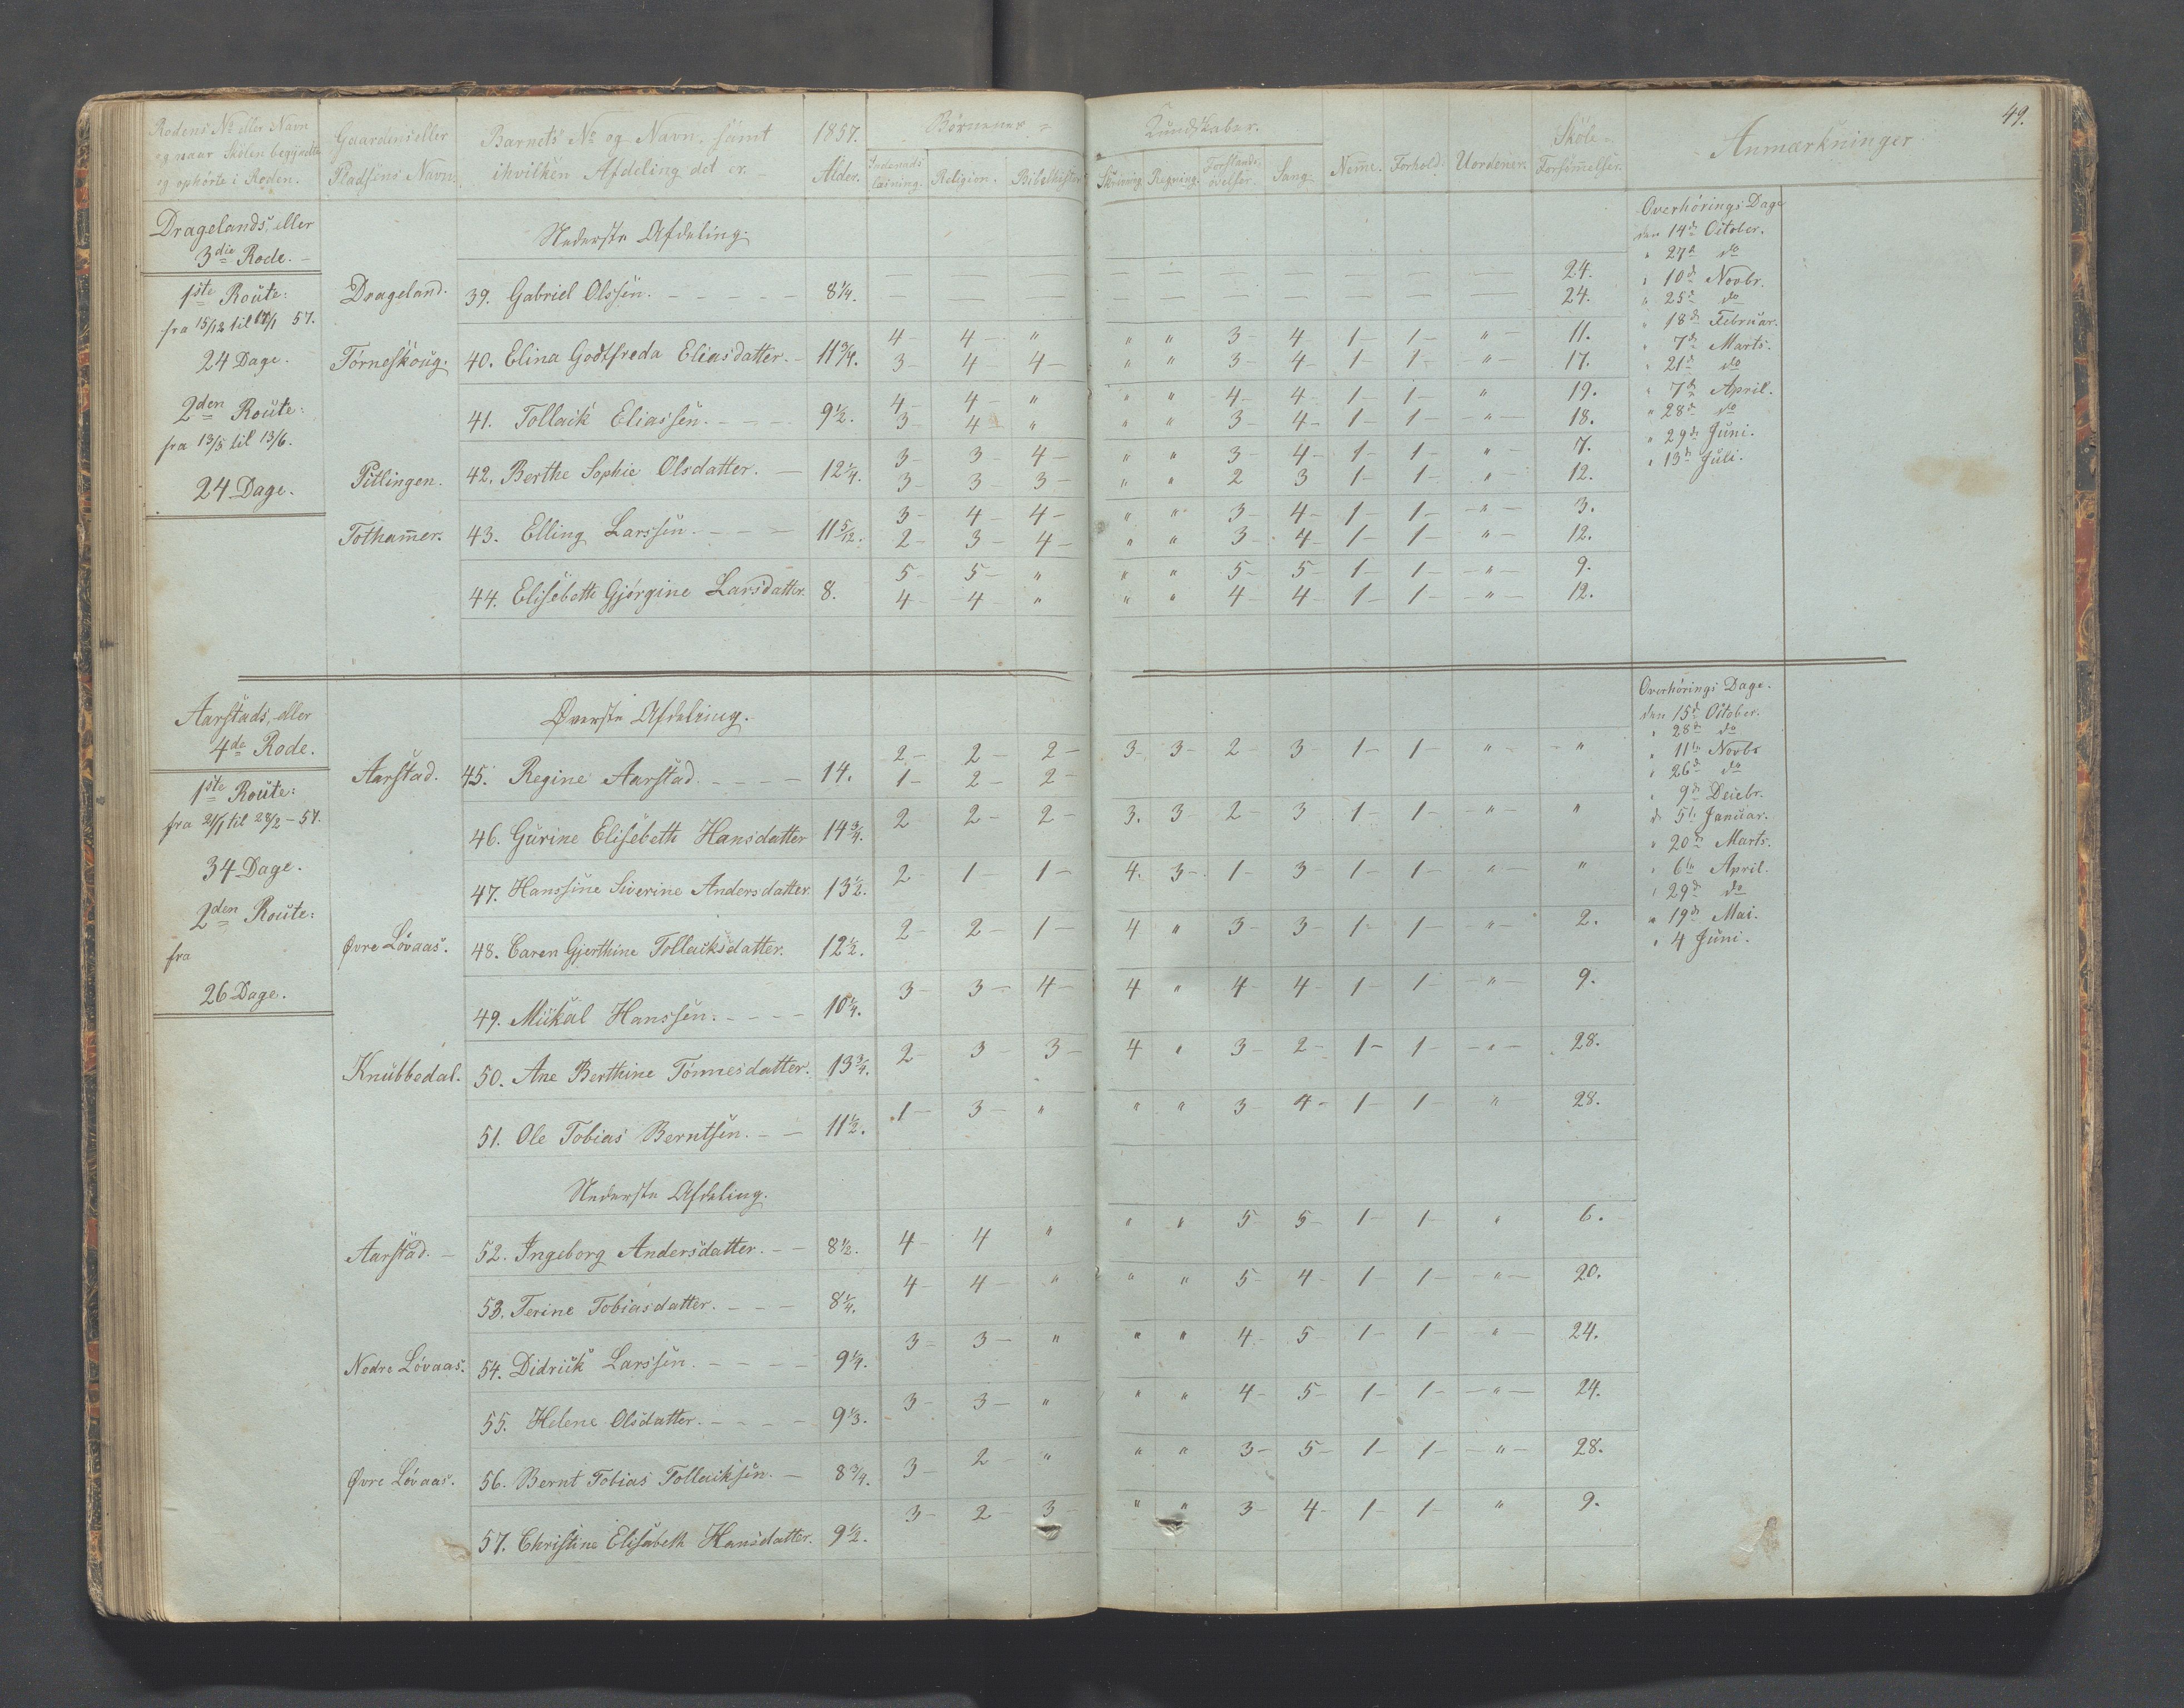 49.
Rodens No eller Navn og naar Skolen begyndte og ophørte i Roden. Gaardens eller Pladsens Navn. Barnets No og Navn, samt ihvilken Afdeling det er. 1857. Alder. Børnenes Kundskaber. Indenadslæsning. Religion. Bibelhistorie Skrivning Regning. Forstands øvelser. Sang. Nemme. Forhold. Uordener. Skole-Forsømmelser. Anmærkninger
Dragelands, eller
3die Rode.
Nederste Afdeling.
1ste Route:
fra 15/12 til 17/1 57.
24 Dage.
2den Route:
fra 13/5 til 13/6.
24 Dage.
— — — — — — — — — — 24.
Drageland. 39. Gabriel Olssen. 8 1/4. — — — — — — — — — — 24.
4 4 " " " 3 4 1 1 " 11.
Tørneskoug. 40. Elina Godtfreda Eliasdatter. 11 3/4. 3 4 4 " " 3 4 1 1 " 17.
4 4 " " " 4 4 1 1 " 19.
41. Tollack Eliassen. 9 1/2. 3 4 " " " 3 4 1 1 " 18.
3 3 4 " " 3 4 1 1 " 7.
Pitlingen. 42. Berthe Sophie Olsdatter. 12 1/4. 3 3 3 " " 2 3 1 1 " 12.
3 4 4 " " 3 4 1 1 " 3.
Tothammer. 43. Elling Larssen. 11 5/12. 2 3 4 " " 3 4 1 1 " 12.
5 5 " " " 5 5 1 1 " 9.
44. Elisebeth Gjørgine Larsdatter. 8. 4 4 " " " 4 4 1 1 " 12.
Overhørings Dage
den 14de October.
" 27de do
" 10de Novbr.
" 25de do
" 18de Februar.
" 7de Marts.
" 21de do
" 7de April.
" 28de do
" 29de Juni.
" 13de Juli.
Aarstads, eller
4de Rode.
Øverste Afdeling.
1ste Route:
fra 21/1 til 28/2 - 57.
34 Dage.
2den Route:
fra
26 Dage.
2 2 2 3 3 2 3 1 1 " "
Aarstad. 45. Regine Aarstad. 14. 1 2 2
46. Gurine Elisebeth Hansdatter 14 3/4. 2 2 2 3. 3 2 3 1 1 " "
47. Hanssine Siverine Andersdatter. 13 1/2. 2 1 1 4. 3 1 3 1 1 " "
Øvre Løvaas. 48. Caren Gjerthine Tollacksdatter. 12 1/2. 2 2 1 4 " 3 3 1 1 " 2.
49. Mikal Hanssen. 10 1/4. 3 3 4 4 " 4 4 1 1 " 9.
Knubbedal. 50. Ane Berthine Tønnesdatter. 13 3/4. 2 3 3 4 " 3 2 1 1 " 28.
51. Ole Tobias Berntsen. 11 1/2. 1 3 " " " 3 4 1 1 " 28.
Nederste Afdeling.
Aarstad. 52. Ingeborg Andersdatter. 8 1/2. 4 4 " " " 5 5 1 1 " 6.
53. Terine Tobiasdatter. 8 1/4. 4 4 " " " 5 4 1 1 " 20.
Nedre Løvaas. 54. Didrick Larssen. 9 1/4. 3 3 " " " 4 5 1 1 " 24.
55. Helene Olsdatter. 9 1/3. 3 3 " " " 4 5 1 1 " 24.
Øvre Løvaas. 56. Bernt Tobias Tollacksen. 8 3/4. 3 2 " " " 3 5 1 1 " 28.
57. Christine Elisabeth Hansdatter. 9 1/2. 3 2 3 " " 3 4 1 1 " 9.
Overhørings Dage.
den 15de October.
" 28de do
" 11te Novbr
" 26de do
" 9de Decbr.
d. 5te Januar.
" 20de Marts.
" 6te April.
" 29de do
" 19de Mai.
" 4 Juni.